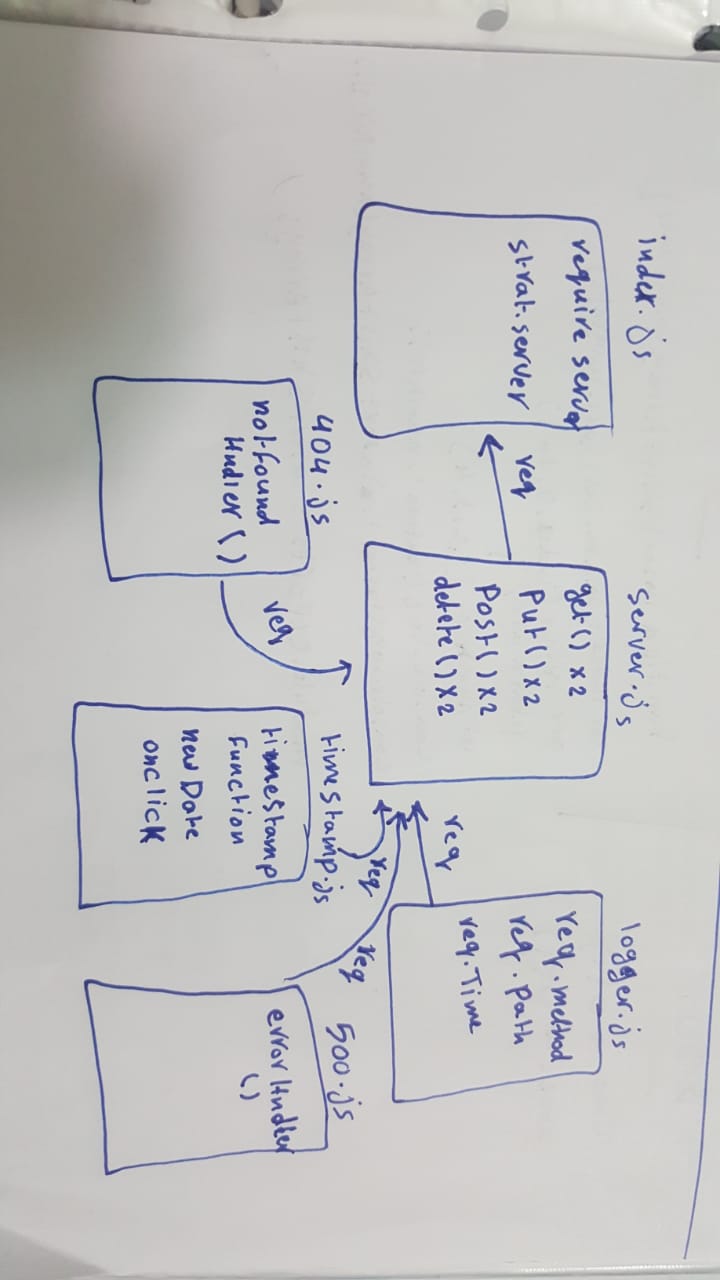 index.js
require server
strat.server
req
server.js
get() x2
Put() x2
Post() x2
delete() x2
logger.js
req.method
req.path
req.Time
req
404.js
notfound
Hndler ()
req
timestamp.js
timestamp
Function
new Date
onclick
req
500.js
error Hndler
()
req